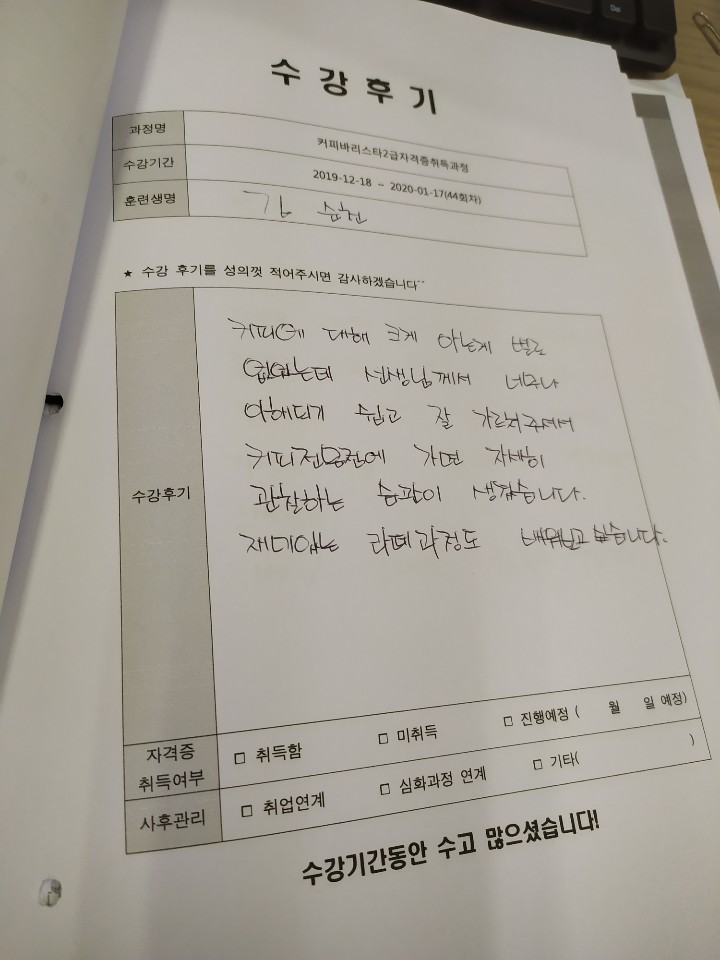 수 강 후 기
과정명 커피바리스타2급자격증취득과정
수강기간 2019-12-18 ~ 2020-01-17(44회차)
훈련생명
★ 수강 후기를 성의껏 적어주시면 감사하겠습니다^^
커피에 대해 크게 아는게 별로
없었는데 선생님께서 너무나
이해되기 쉽고 잘 가르쳐주셔서
커피전문점에 가면 자세히
관찰하는 습관이 생겼습니다.
수강후기
재미있는 라떼과정도 배워보고 싶습니다.
자격증 취득여부 □ 취득함 □ 미취득 □ 진행예정 ( 월 일 예정)
사후관리 □ 취업연계 □ 심화과정 연계 □ 기타( )
수강기간동안 수고 많으셨습니다!